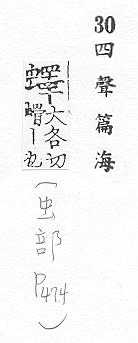 30 四聲篇海
大各切
(虫部 P474)